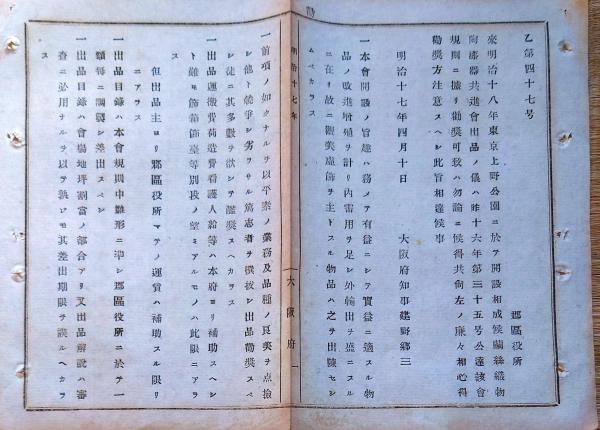 乙第四十七号
郡區役所
來明治十八年東京上野公園ニ於テ開設相成候繭絲織物
陶漆器共進會出品ノ儀ハ昨十六年第三十五号公達該會
規則ニ據リ勸奬可致ハ勿論ニ候得共尙左ノ廉々相心得
勸奬方注意スヘシ此旨相達候事
明治十七年四月十日
大阪府知事建野郷三
一本會開設ノ旨趣ハ務メテ有益ニシテ實益ニ適スル物
品ノ改進增殖ヲ計リ內需用ヲ足シ外輸出ヲ盛ニスル
ニ在リ故ニ觀美虛飾ヲ主トスル物品ハ之ヲ出陳セシ
ムベカラス
一前項ノ如クナルヲ以平素ノ業務及品種ノ良美ヲ点撿
シ他ト競爭シ劣ラサル篤志者ヲ撰拔シ出品勸奬スベ
シ徒ニ其多數ヲ欲シテ濫奬スヘカラス
一出品運搬費荷造費看護人給等ハ本府ヨリ補助スヘシ
ト雖モ飾箱飾臺等別段ノ望ミアルモノハ此限ニアラ
ス
但出品主ヨリ郡區役所マテノ運賃ハ補助スル限リ
ニアラス
一出品目錄ハ本會規則中雛形ニ準シ郡區役所ニ於テ一
類每ニ調製シ差出スベシ
一出品目錄ハ會塲地坪割當ノ都合アリ又出品解說ハ審
査ニ必用ナルヲ以テ孰レモ其差出期限ヲ誤ルヘカラ
ス
明治十七年
大阪府
一